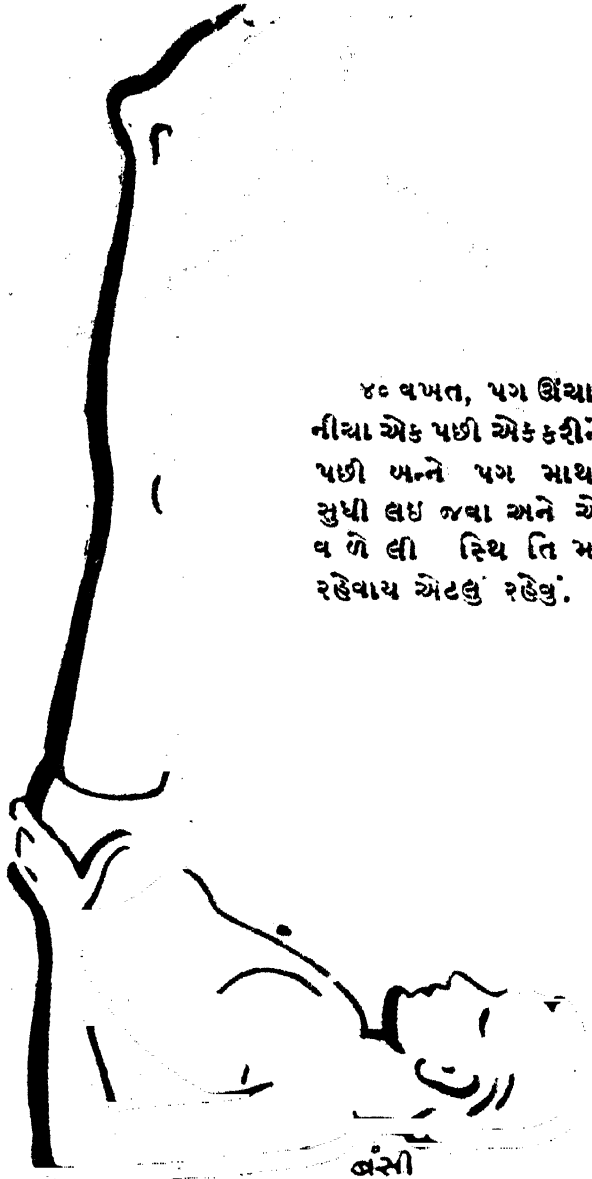 ૪૦ વખત, પગ ઊંચા
નીચા એક પછી એક કરીને
પછી બન્ને પગ માથ
સુધી લઇ જવા અને એ
વ ળે લી સ્થિ તિ મ
રહેવાય એટલું રહેવું.
બંસી